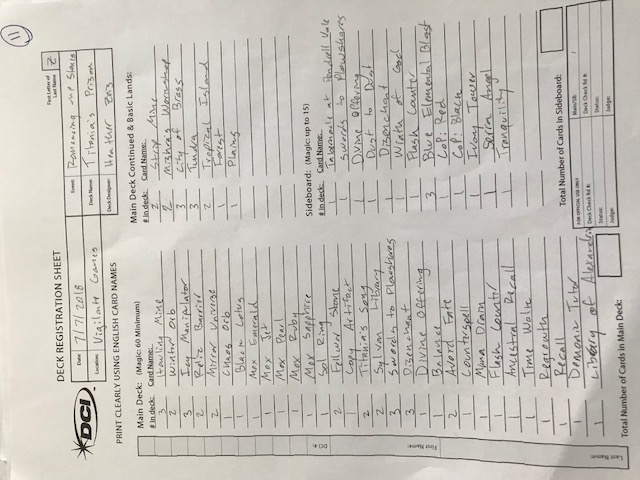 11
DECK REGISTRATION SHEET
First Letter of
Last Name
Z
DCI
Date: 7/7/2018
Event: Romancing the Stones
Location: Vigilante Games
Deck Name: Titania's Prison
Deck Designer: Heather
PRINT CLEARLY USING ENGLISH CARD NAMES
Main Deck: (Magic: 60 Minimum)
# in deck: Card Name:
3 Howling Mine
2 Winter Orb
3 Icy Manipulator
2 Relic Barrier
2 Mirror Universe
1 Chaos Orb
1 Black Lotus
1 Mox Emerald
1 Mox Jet
1 Mox Pearl
1 Mox Ruby
1 Mox Sapphire
1 Sol Ring
2 Fellwar Stone
1 Copy Artifact
2 Titania's Song
2 Sylvan Library
3 Swords to Plowshares
3 Disenchant
1 Divine Offering
1 Balance
2 Avoid Fate
1 Counterspell
1 Mana Drain
1 Flash Counter
1 Ancestral Recall
1 Time Walk
1 Regrowth
1 Recall
1 Demonic Tutor
1 Library of Alexandria
Total Number of Cards in Main Deck:
Main Deck Continued & Basic Lands:
# in deck: Card Name:
2 Strip Mine
2 Mishra's Workshop
3 City of Brass
3 Tundra
2 Tropical Island
1 Forest
1 Plains
Sideboard: (Magic: up to 15)
# in deck: Card Name:
1 Tabernacle at Pendrell Vale
1 Swords to Plowshares
1 Divine Offering
1 Dust to Dust
1 Disenchant
1 Wrath of God
1 Flash Counter
3 Blue Elemental Blast
1 CoP: Red
1 CoP: Black
1 Ivory Tower
1 Serra Angel
1 Tranquility
Total Number of Cards in Sideboard:
FOR OFFICIAL USE ONLY
Main/SB: /
Deck Check Rd #:
Deck Check Rd #:
Status:
Status:
Judge:
Judge:
DCI #:
First Name:
Last Name: